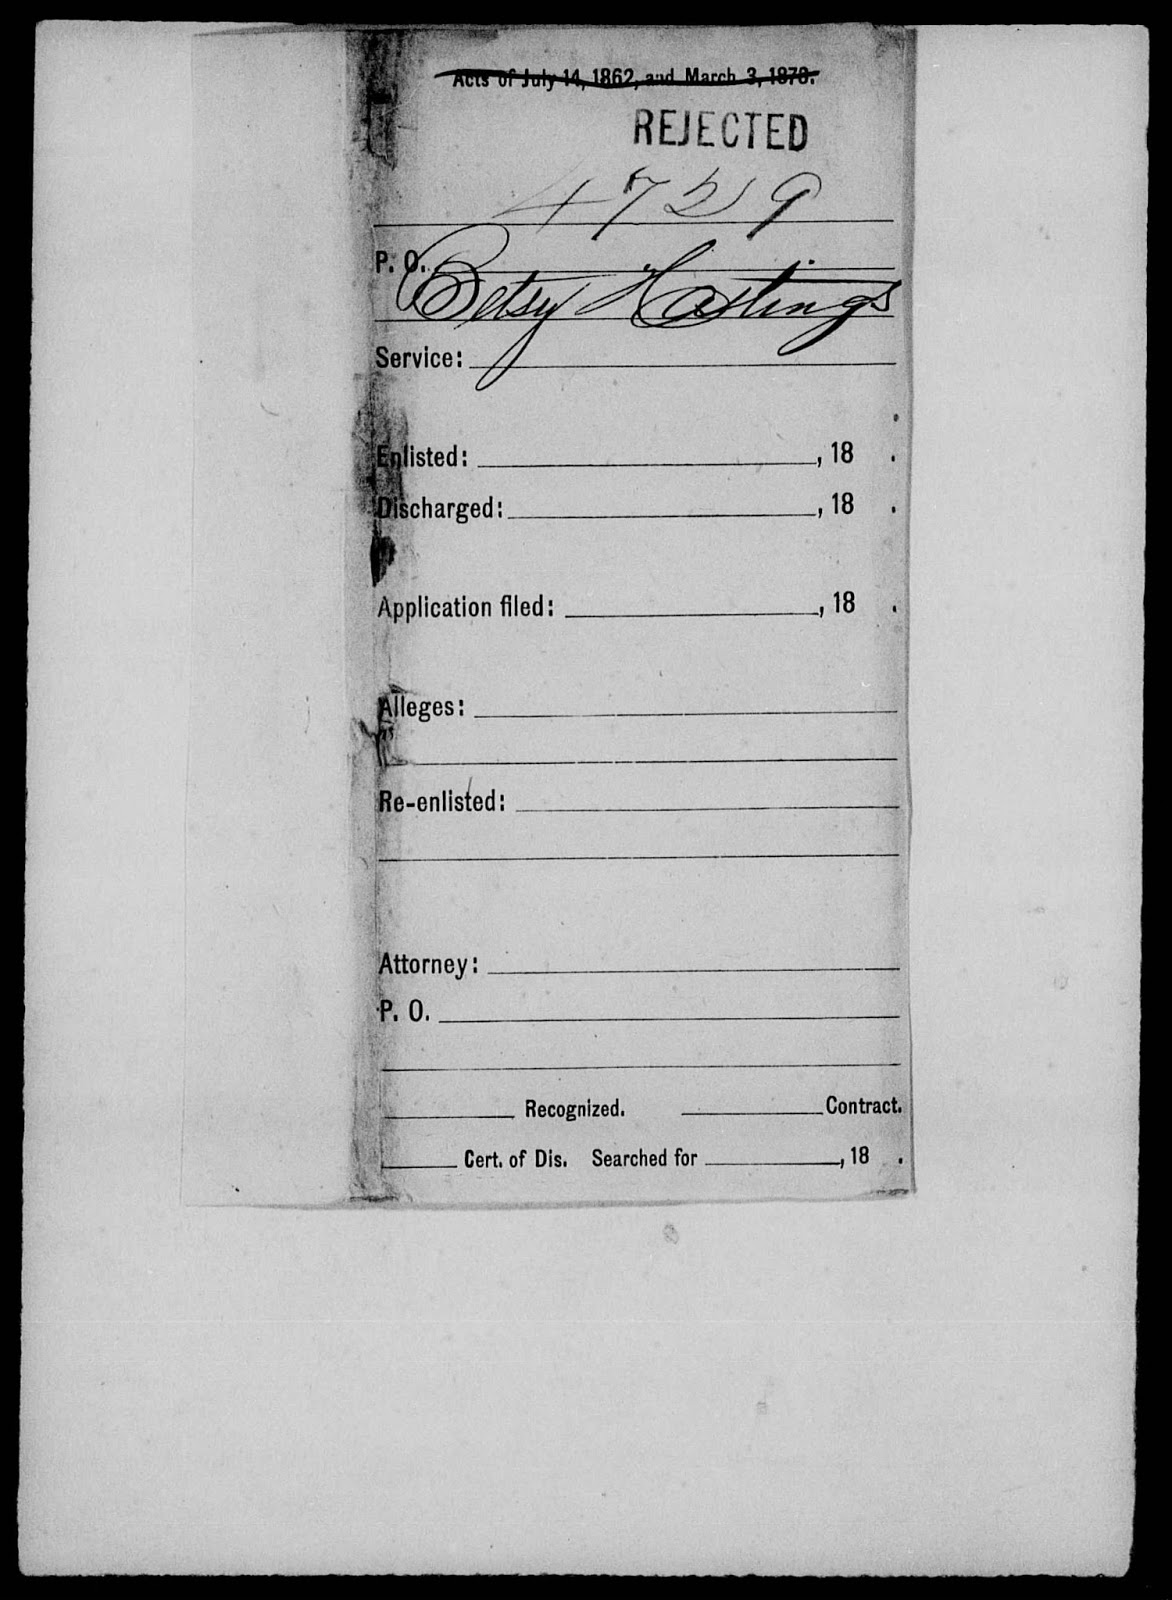 Acts of July 14, 1862, and March 3, 1873.
REJECTED
4729
P. O.
Betsy Hastings
Service:
Enlisted: , 18 .
Discharged: , 18 .
Application filed: , 18 .
Alleges:
Re-enlisted:
Attorney:
P. O.
Recognized. Contract.
Cert. of Dis. Searched for , 18 .